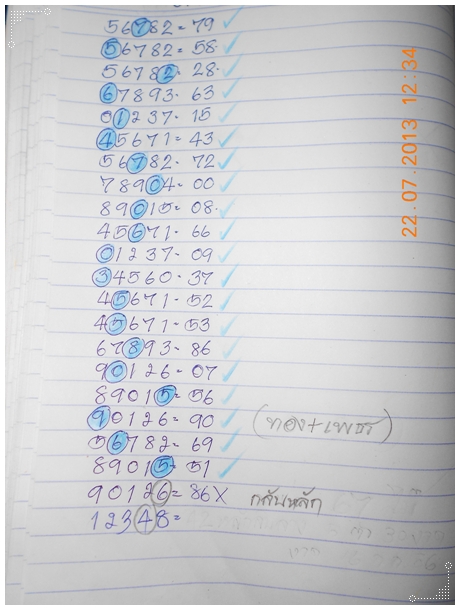 56782 = 79
56782 = 58.
56782 . 28.
67893. 63
01237. 15
45671 = 43
56782. 72
78904 = 00
89015 = 08.
45671 - 66
01237 - 09
34560 - 37
45671 - 52
45671 - 53
67893 - 86
90126 - 07
89015 = 56
90126 - 90 (ทอง+เพชร)
56782 - 69
89015 - 51
90126 = 86X กลับหลัก
12348 =
22.07.2013 12:34